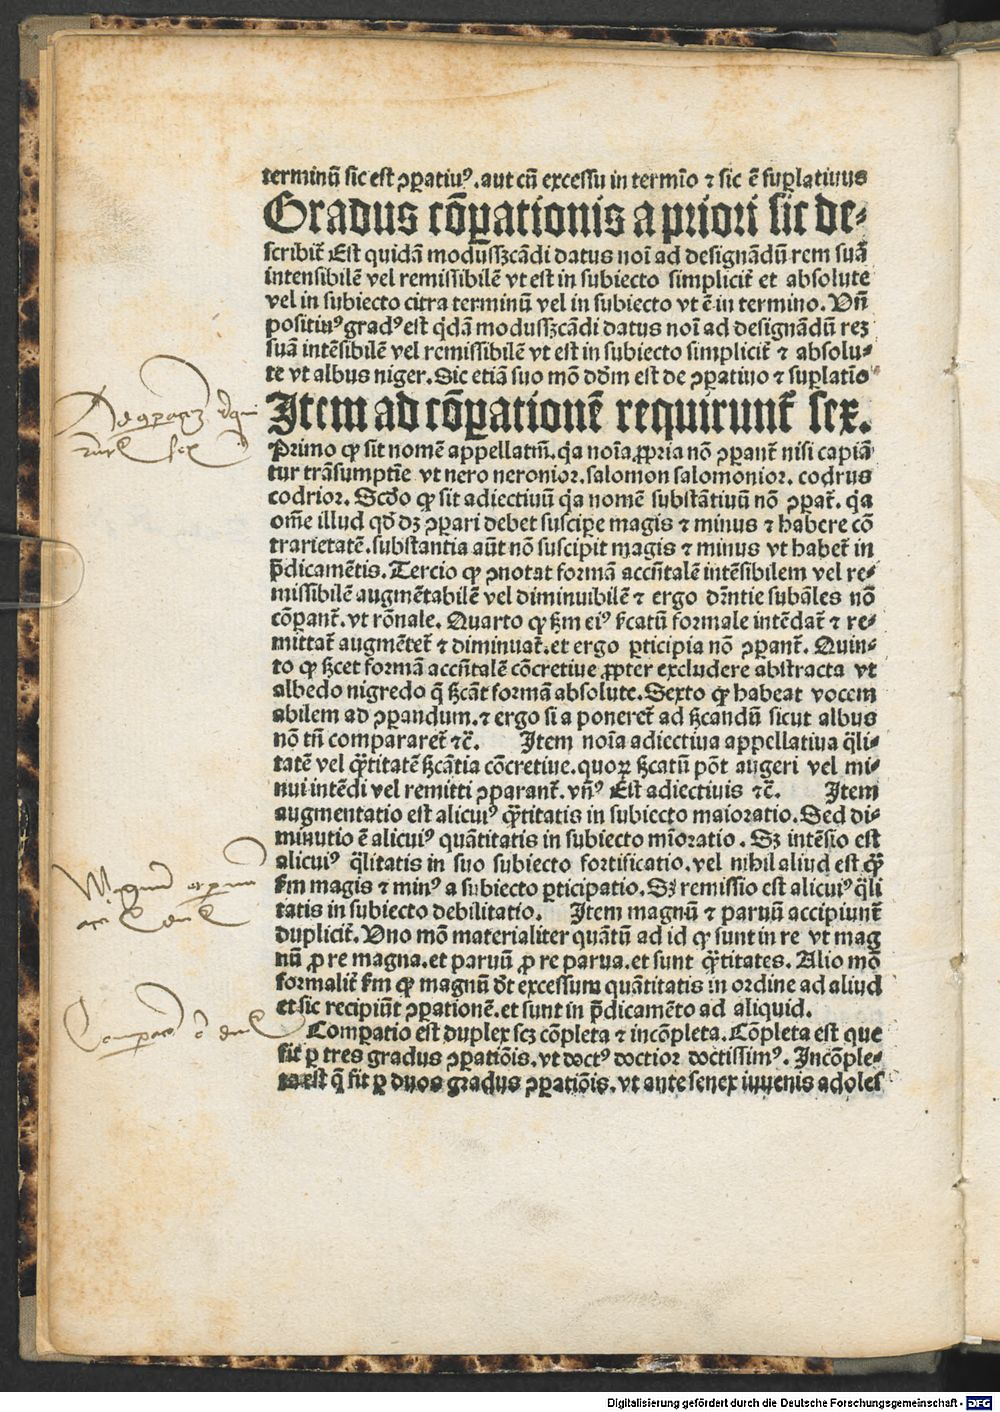 terminū sic est ꝯꝑatiuꝰ. aut cū excessu in termīo ⁊ sic ē suꝑlatiuus
Gradus cōꝑationis a priori sic de⸗
scribit̄ Est quidā modus sꝫcādi datus noī ad designādū rem suā
intensibilē vel remissibilē vt est in subiecto simplicit̄ et absolute
vel in subiecto citra terminū vel in subiecto vt ē in termino. Vñ
positiuꝰ gradꝰ est q̇dā modus sꝫcādi datus noī ad designādū reꝫ
suā intēsibilē vel remissibilē vt est in subiecto simplicit̄ ⁊ absolu⸗
te vt albus niger. Sic etiā suo mō dd̄m est de ꝯꝑatiuo ⁊ suꝑlatīo
Item ad cōꝑationē requirunt̄ sex.
Primo ꝙ sit nomē appellatm̄. q̇a noīa ꝓpria nō ꝯꝑant̄ nisi capiā
tur trāsumptīe vt nero neronior. salomon salomonior. codrus
codrior. Scd̄o ꝙ sit adiectiuū q̇a nomē substātiuū nō ꝯꝑat̄. q̇a
om̄e illud qd̄ dꝫ ꝯꝑari debet suscipe magis ⁊ minus ⁊ habere cō
trarietatē. substantia aūt nō suscipit magis ⁊ minus vt habet̄ in
p̄dicamētis. Tercio ꝙ ꝯnotat formā accn̄talē intēsibilem vel re⸗
missibilē augmētabilē vel diminuibilē ⁊ ergo dr̄ntie subāles nō
cōpant̄. vt rōnale. Quarto ꝙ sꝫm eiꝰ sꝫcatū formale intēdat̄ ⁊ re⸗
mittat̄ augmētet̄ ⁊ diminuat̄. et ergo ꝑticipia nō ꝯꝑant̄. Quin⸗
to ꝙ sꝫcet formā accn̄talē cōcretiue ꝓpter excludere abstracta vt
albedo nigredo q̄ sꝫcāt formā absolute. Sexto ꝙ habeat vocem
abilem ad ꝯꝑandum. ⁊ ergo si a poneret̄ ad sꝫcandū sicut albus
nō tn̄ compararet̄ ⁊c̄. Item noīa adiectiua appellatiua q̄li⸗
tatē vel q̄ꝫtitatē sꝫcātia cōcretiue. quoꝝ sꝫcatū pōt augeri vel mi⸗
nui intēdi vel remitti ꝯparant̄. vn̄ꝰ Est adiectiuis ⁊c̄. Item
augmentatio est alicuiꝰ q̄ꝫtitatis in subiecto maioratio. Sed di⸗
minutio ē alicuiꝰ quātitatis in subiecto mīoratio. Sꝫ intēsio est
alicuiꝰ q̄litatis in suo subiecto fortificatio. vel nihil aliud est q̄ꝫ
sꝫm magis ⁊ minꝰ a subiecto ꝑticipatio. Sꝫ remissio est alicuiꝰ q̄li
tatis in subiecto debilitatio. Item magnū ⁊ paruū accipiunt̄
duplicit̄. Vno mō materialiter quātū ad id ꝙ sunt in re vt mag
nū ꝓ re magna. et paruū ꝓ re parua. et sunt q̄ꝫtitates. Alio mō
formalit̄ sꝫm ꝙ magnū dt̄ excessum quātitatis in ordine ad aliud
et sic recipiūt ꝯꝑationē. et sunt in p̄dicamēto ad aliquid.
Comꝑatio est duplex scꝫ cōpleta ⁊ incōpleta. Cōpleta est que
fit ꝑ tres gradus ꝯꝑatiōis. vt doctꝰ doctior doctissimꝰ. Incōple⸗
ta est q̄ fit ꝑ duos gradus ꝯꝑatiōis. vt ante senex iuuenis adoles
sex
Digitalisierung gefördert durch die Deutsche Forschungsgemeinschaft - DFG